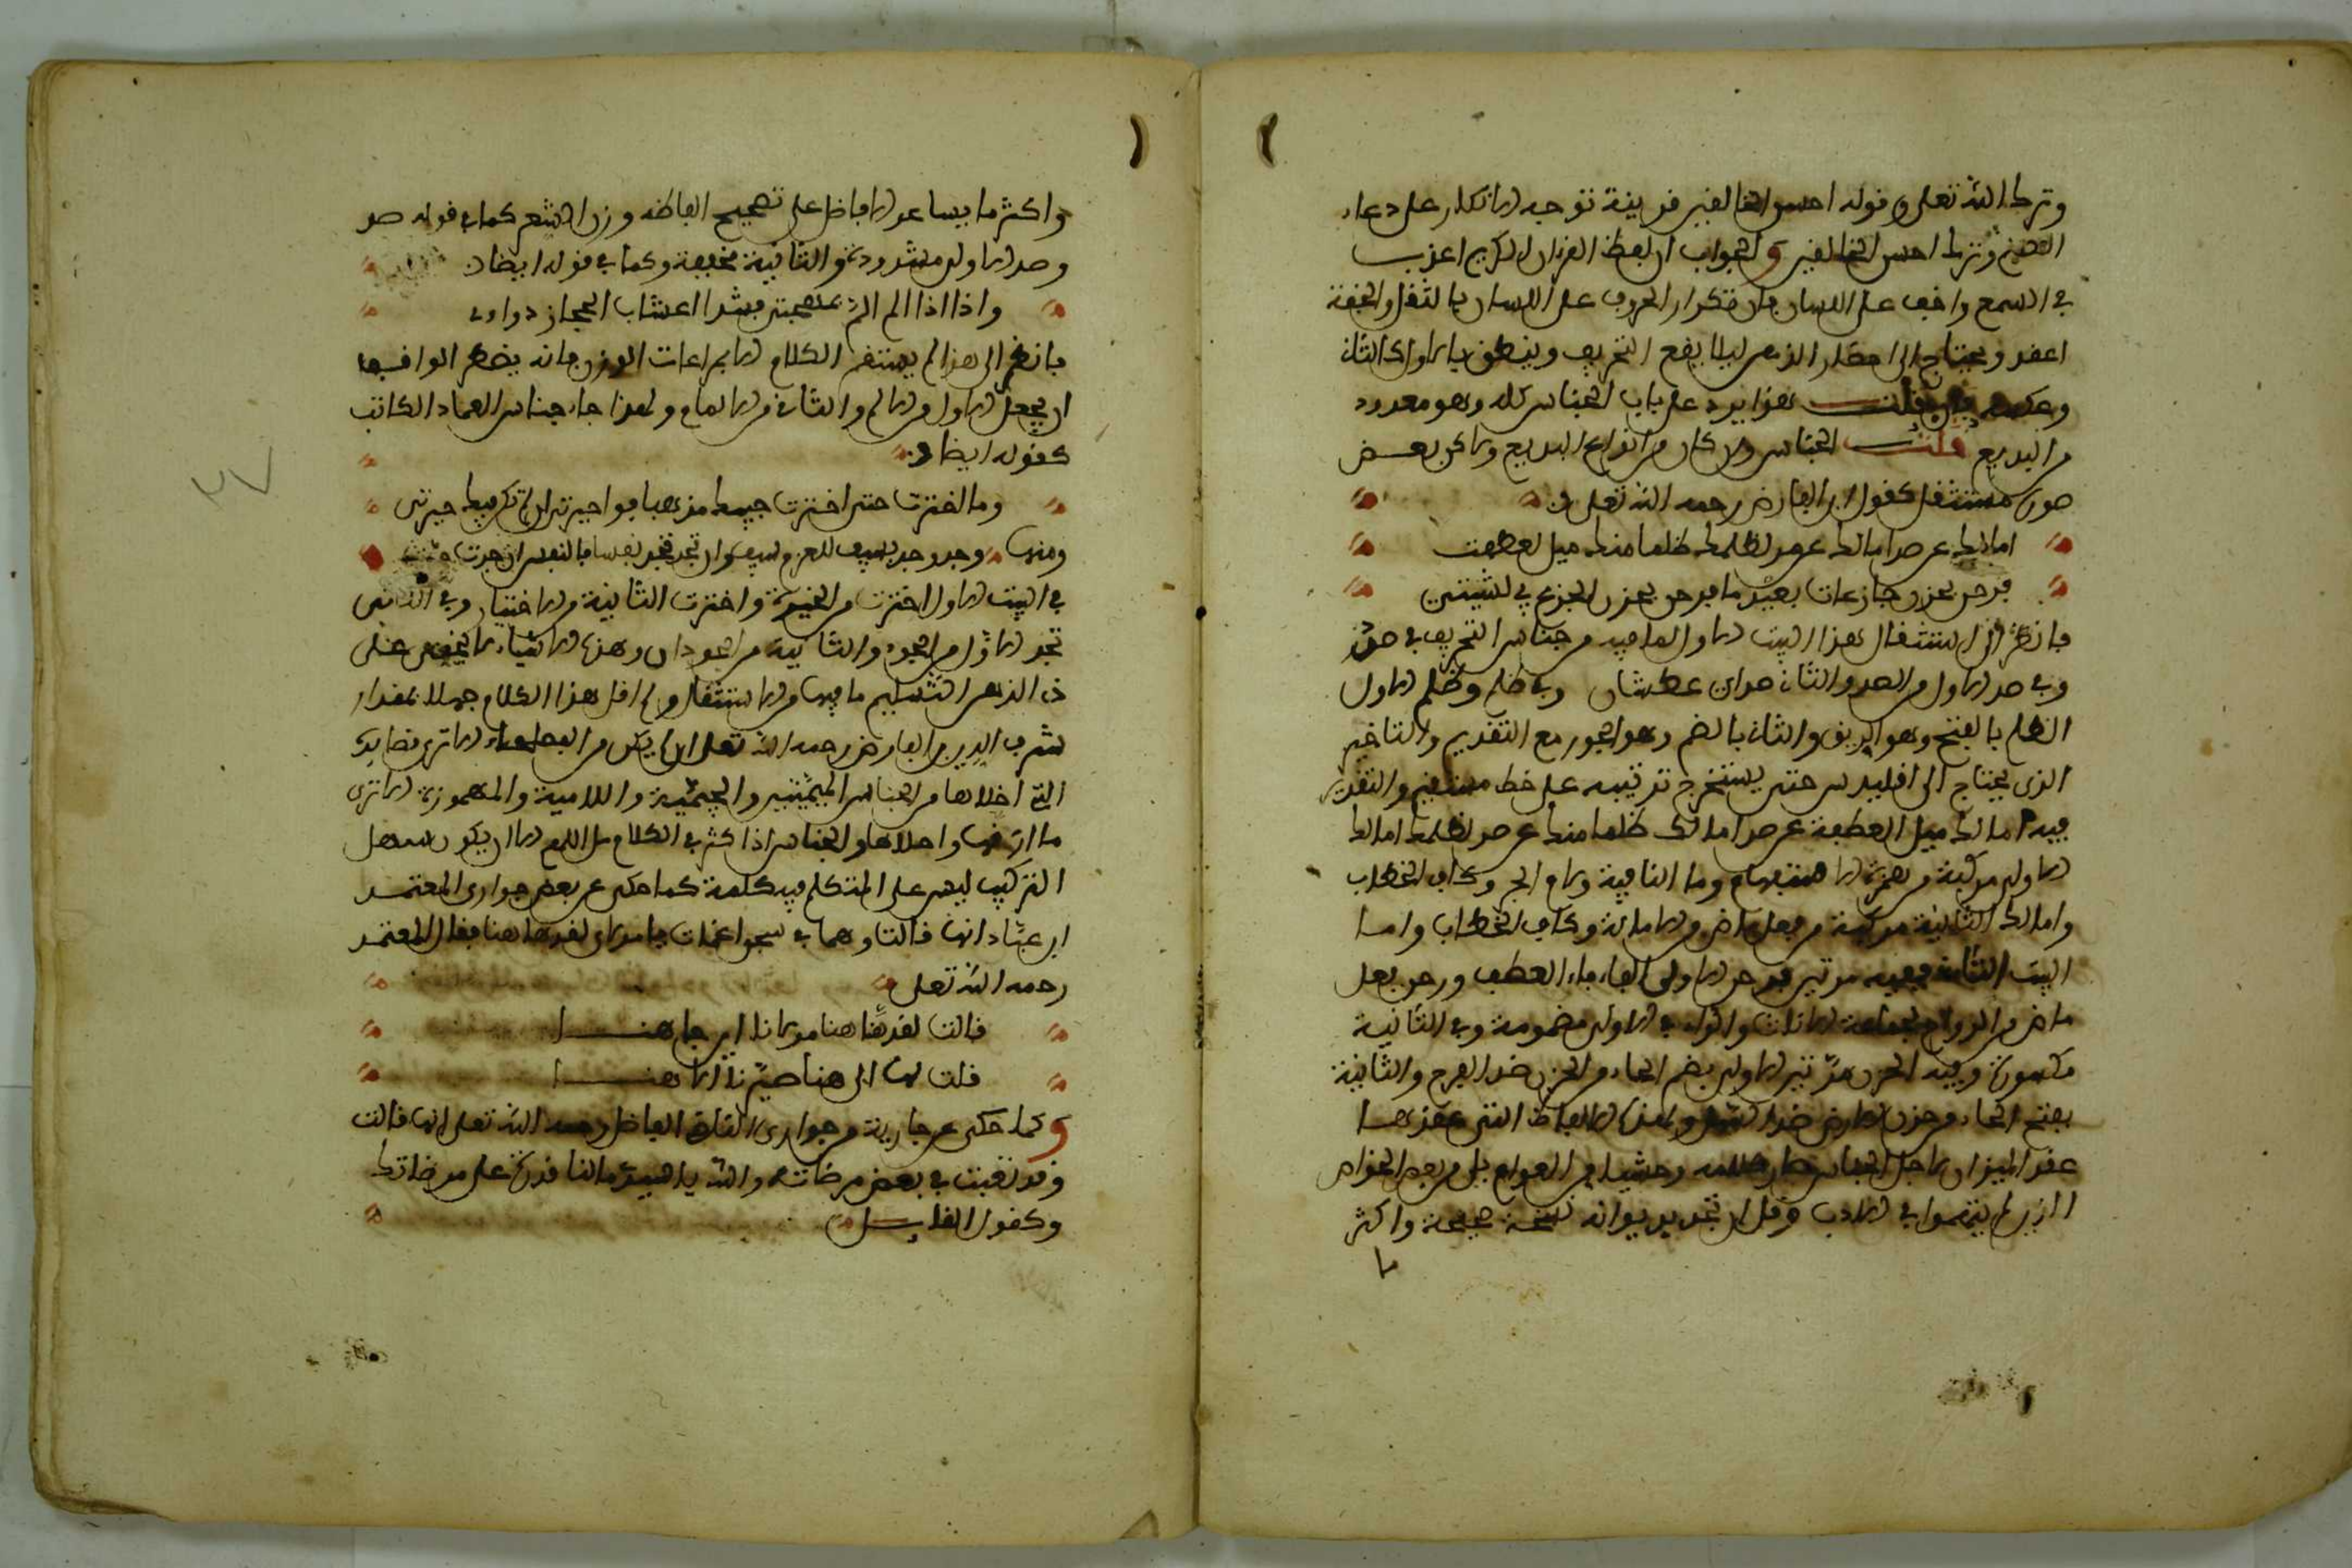 وترك الله تعلى في قوله احسن الخالقين قرينة توجه الانكار على دعاء
الصنم وترك احسن الخالقين والجواب ان لفظ القران الكريم اعذب
في السمع واخف على اللسان فان تكرار الحروف على اللسان بالثقل والخفة
اعقد ويحتاج الى احضار الذهن ليلا يقع التحريف وينطق بالاول كالثان
وعكسه فان قلت هذا يرد على باب الجناس كله وهو معدود
من البديع قلت الجناس وان كان من انواع البديع ولاكن بعض
صوره مستثقل كقول ابن الفارض رحمه الله تعلى
امالك عن صد امالك عن صد لظلمك ظلما منك ميل لعطفت
فرحن بحزن جازعات بعيد ما فرحن بحزن الجزع في لشبيبتي
فانظر الى استثقال هذا البيت الاول لما فيه من جناس التحريف في صد
وفي صد الاول من الصد والثان صداى عطشان وفي ظلم وظلم الاول
الظلم بالفتح وهو الريق والثان بالضم وهو الجور مع التقديم والتاخير
الذى يحتاج الى اقليدس حتى يستخرج ترتيبه على خط مستقيم والتقدير
فيه امالك ميل لعطفة عن صد امالك ظلما منك عن صد لظلمك امالك
الاولى مركبة من همزة الاستفهام وما النافية ولام الجر وكاف الخطاب
وامالك الثانية مركبة من فعل ماض من الامالة وكاف الخطاب واما
البيت الثان ففيه مرتين فرحن الاولى الفاء فاء العطف ورحن فعل
ماض من الرواح لجماعة الاناث والراء في الاولى مضمومة وفي الثانية
مكسورة وفيه الحزن مرتين الاولى بضم الحاء من الحزن ضد الفرح والثانية
بفتح الحاء من حزن الارض ضد السهل ولهذا الالفاظ التى عقدها
عقد الميزان لاجل الجناس صار كلامه وحشيا من العوام بل من بعض الخواص
الذين لم يتمهروا في الادب وقل ان تجد بديوانه نسخة صحيحة واكثر
ما
واكثر ما يساعد الافاضل على تصحيح الفاظه وزن الشعر كما في قوله صد
وصد الاولى مشددة والثانية مخففة وكما في قوله ايضا
واذا اذا الم الم بمهجتى فشذا اعشاب الحجاز دواءى
فانظر الى هذا لم يستقم الكلام الا بمراعات الوزن فانه يضطر الواقف
ان يجعل الاول من الالم والثان من الالمام ولهذا جاء جناس العماد الكاتب
كقوله ايضا
وما اخترت حتى اخترت حبيك مذهبا فوا حيرتى ان لم تكن فيك خيرتى
ومنها وجد وجد بسيف العزم سوف وان تجد تجد نفسا فالنفس ان جدت جدت
في البيت الاول اخترت من الحيرة واخترت الثانية من الاختيار وفي الثانى
تجد الاول من الجود والثانية من الوجدان وهذه الاشياء لا يخفى على
ذى الذهن السليم ما فيها من الاستثقال ولم اقل هذا الكلام جهلا بمقدار
شرف الدين بن الفارض رحمه الله تعلى ان لم يكن من الفصحاء الا ترى قصايده
التى اخلاها من الجناس الميميتين والجيمية واللامية والمهموزة الا ترى
ما ارقها واحلاها والجناس اذا كثر في الكلام مل اللهم الا ان يكون سهل
التركيب ليس على المتكلم فيه كلفة كما حكى عن بعض جوارى المعتمد
ابن عباد انها قالت وهما في سجن اغمات يا مولاى لقد هنا هنا فقال المعتمد
رحمه الله تعلى
قالت لقد هنا هنا مولاى اين جاهنا
قلت لها الى هنا صيرنا الاهنا
وكما حكى عن جارية من جوارى القاضى الفاضل رحمه الله تعلى انها قالت
وقد تعبت في بعض مرضاته والله يا سيدى مالنا قدرة على مرضاتك
وكقول القايل
٢٧